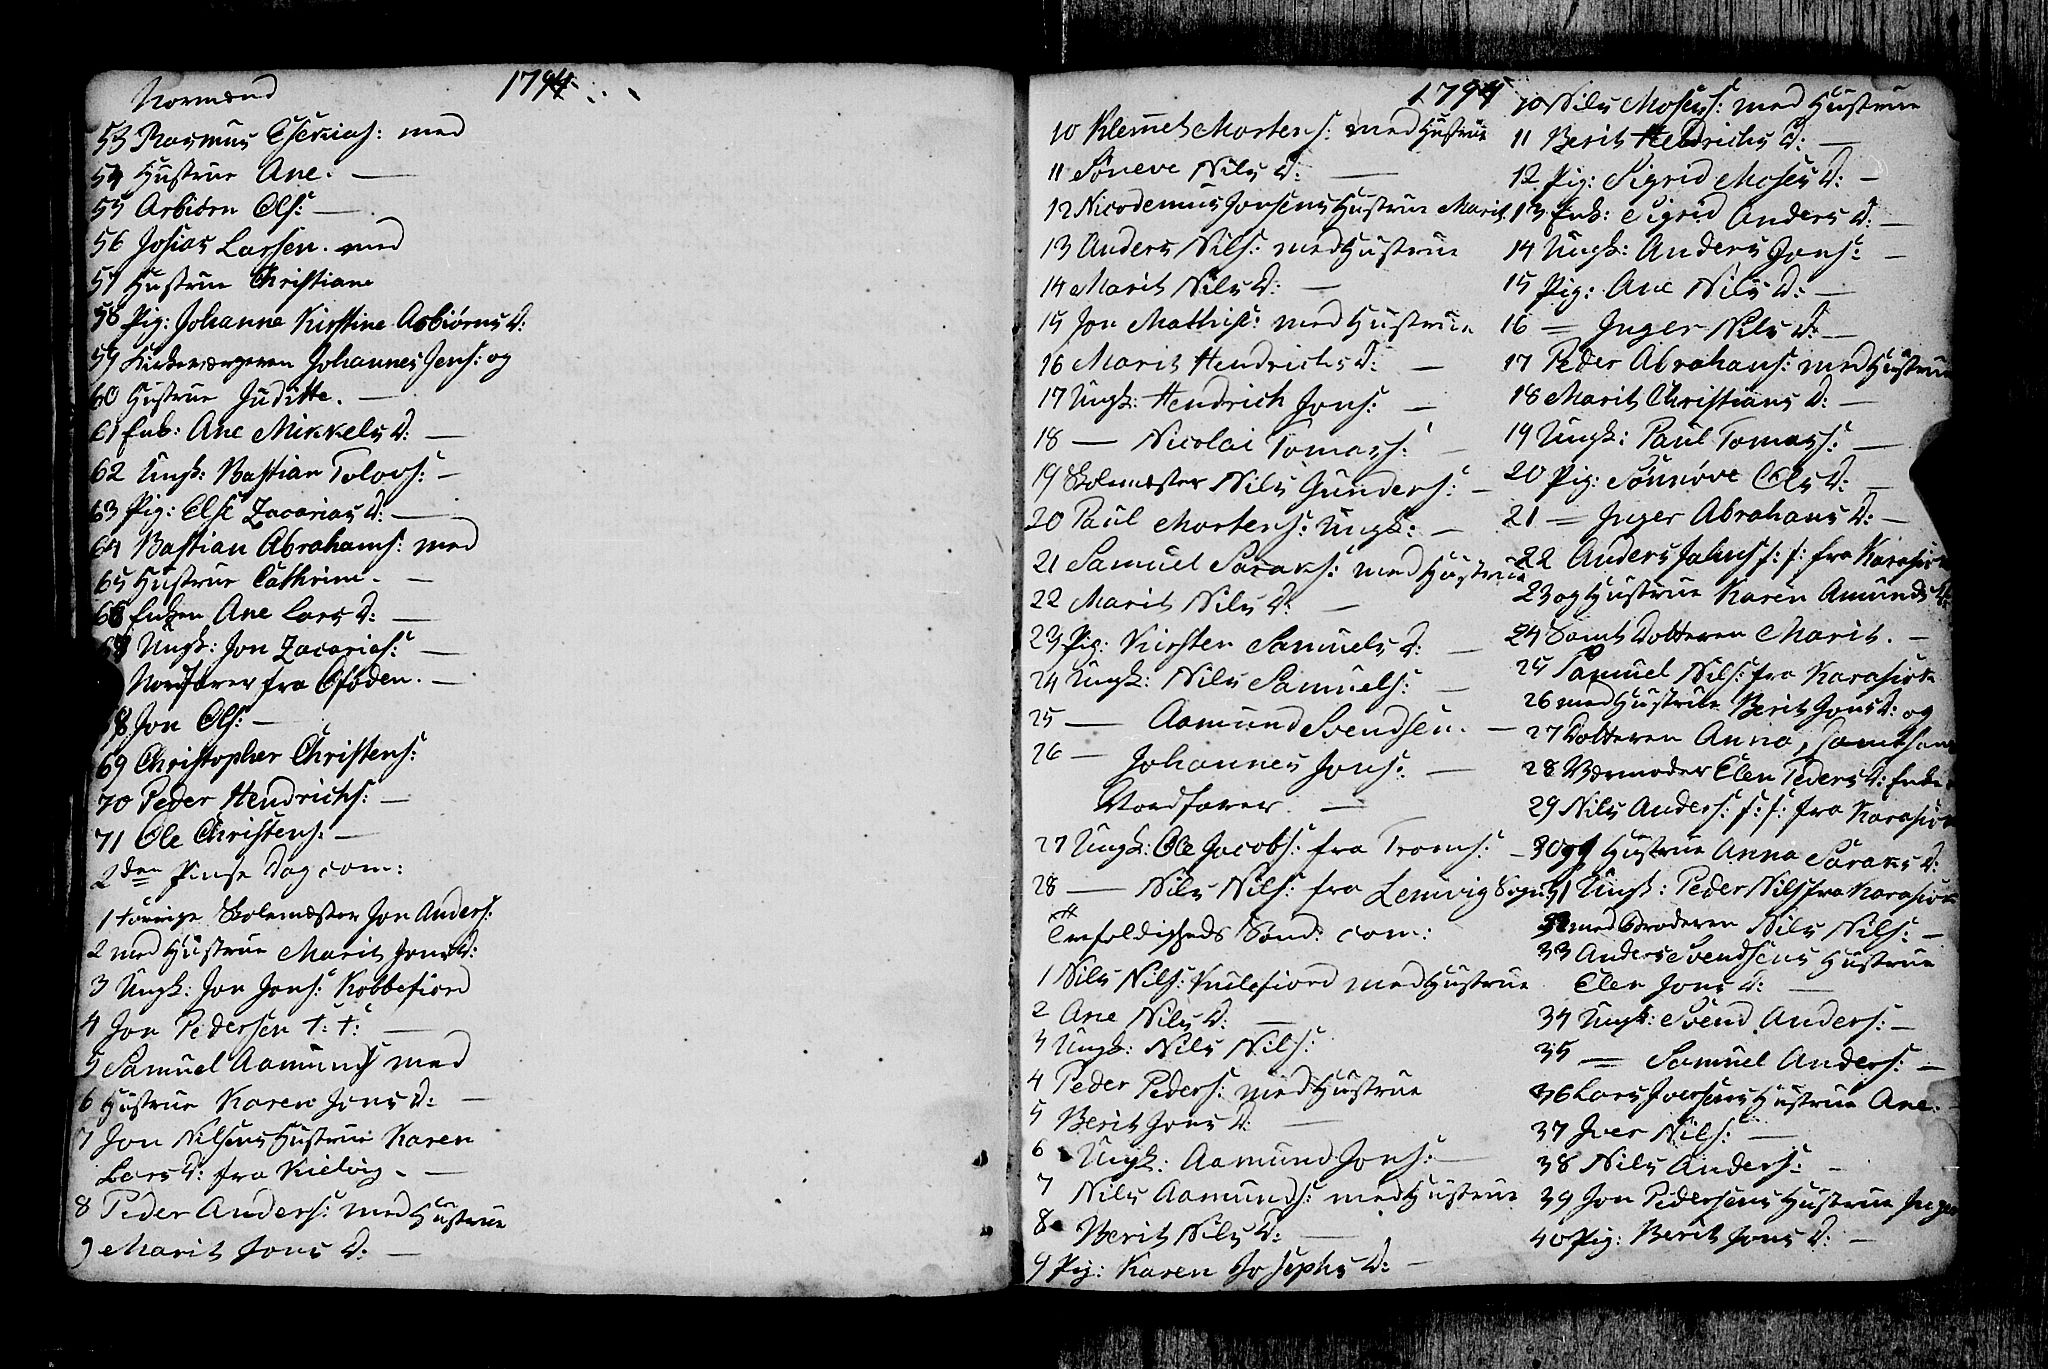 1794
Normænd
53 Rasmus Esekias: med
54 Hustrue Ane. —
55 Asbiørn Ols: —
56 Josias Larsen. med
57 Hustrue Christiane
58 Pig: Johanne Kirstine Asbiørns D:
59 Kirkeværgeren Johannes Jens: og
60 Hustrue Juditte. —
61 Enk: Ane Mikkels D: —
62 Ungk: Bastian Tolovs: —
63 Pig: Else Zacarias D: —
64 Bastian Abrahams: med
65 Hustrue Cathrine. —
66 Enken Ane Lars D: —
67 Ungk: Jon Zacarias: —
Nordfarer fra Ofoden. —
68 Jon Ols: —
69 Christopher Christens:
70 Peder Hendrichs: —
71 Ole Christens: —
2den Pinse Dag com:
1 forrige Skolemæster Jon Anders:
2 med Hustrue Marit Jons D:
3 Ungk: Jon Jons: Kobbefiord
4 Jon Pedersen t: t: —
5 Samuel Aamunds med
6 Hustrue Karen Jons D: —
7 Jon Nilsens Hustrue Karen
Lars D: fra Kielvig. —
8 Peder Anders: med Hustrue
9 Marit Jons D: —
1794
10 Klemet Mortens: med Hustrue
11 Søneve Nils D: —
12 Nicodemus Jonsens Hustrue Marit
13 Anders Nils: med Hustrue
14 Marit Nils D: —
15 Jon Mathis: med Hustrue
16 Marit Hendrichs D: —
17 Ungk: Hendrich Jons: —
18 — Nicolai Tomass: —
19 Skolemæster Nils Gunders: —
20 Paul Mortens: Ungk: —
21 Samuel Saraks: med Hustrue
22 Marit Nils D: —
23 Pig: Kirsten Samuels D: —
24 Ungk: Nils Samuels: —
25 — Aamund Svendsen. —
26 — Johannes Jons: —
Nordfarer. —
27 Ungk: Ole Jacobs: fra Troms: —
28 — Nils Nils: fra Lemvig Sogn
Trefoldigheds Sønd: com:
1 Nils Nils: Kulefiord med Hustrue
2 Ane Nils D: —
3 Ungk: Nils Nils:
4 Peder Peders: med Hustrue
5 Berit Jons D: —
6 Ungk: Aamund Jons: —
7 Nils Aamunds: med Hustrue
8 Berit Nils D: —
9 Pig: Karen Josephs D: —
10 Nils Moses: med Hustrue
11 Berit Hendrichs D: —
12 Pig: Sigrid Moses D: —
13 Enk: Sigrid Anders D: —
14 Ungk: Anders Jons: —
15 Pig: Ane Nils D: —
16 — Inger Nils D: —
17 Peder Abrahams: med Hustrue
18 Marit Christians D: —
19 Ungk: Paul Tomass: —
20 Pig: Sønnøve Ols D: —
21 — Inger Abrahams D: —
22 Anders Johns f: f: fra Karasiok
23 og Hustrue Karen Amunds D:
24 Samt Dotteren Marit. —
25 Samuel Nils: fra Karasiok
26 med Hustrue Berit Jons D: og
27 Dotteren Anna, samt hans
28 Værmoder Elen Peders D: Enke
29 Nils Anders: f: f: fra Karasiok
30 og Hustrue Anna Saraks D:
31 Ungk: Peder Nils: fra Karasiok
32 med Broderen Nils Nils: —
33 Anders Svendsens Hustrue
Elen Jons D: —
34 Ungk: Svend Anders: —
35 — Samuel Anders: —
36 Lars Iversens Hustrue Ane. —
37 Iver Nils: —
38 Nils Anders: —
39 Jon Pedersens Hustrue Inger
40 Pig: Berit Jons D: —